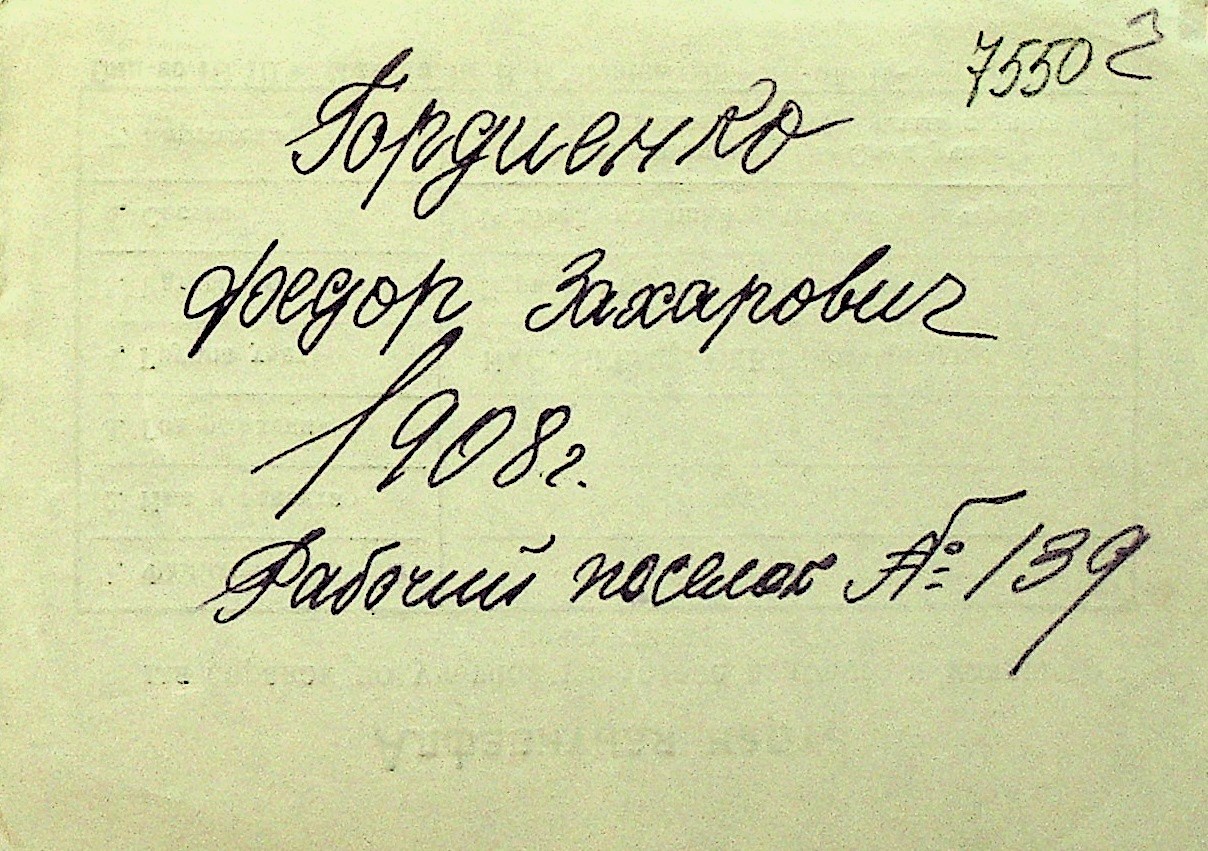 7550
Гордиенко
Федор Захарович
1908г.
Рабочий поселок № 139